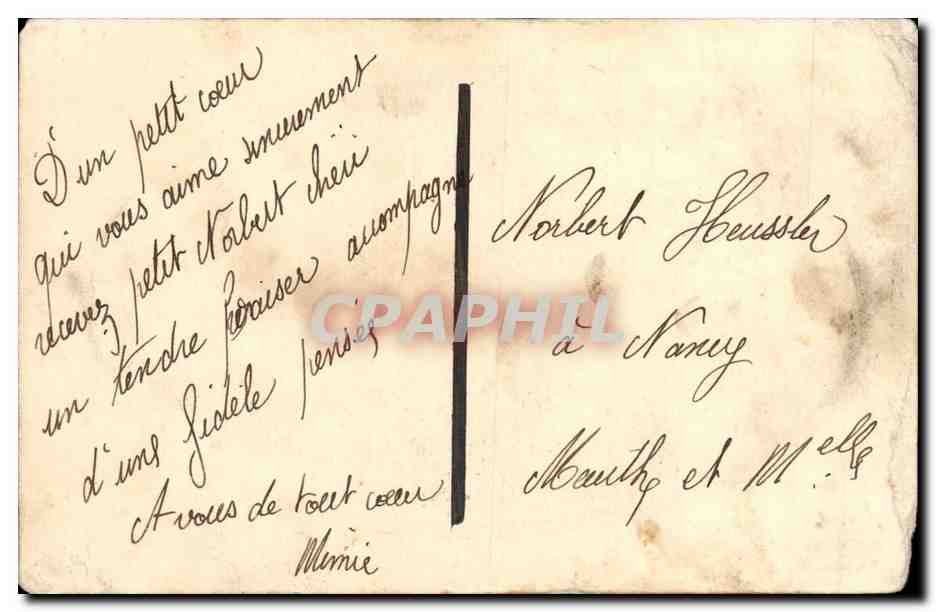 D'un petit cœur
qui vous aime sincerement
recevez petit Norbert chéri
un tendre baiser accompagné
d'une fidèle pensée
A vous de tout cœur
Mimie
Norbert Heussler
à Nancy
et Melle
CPAPHIL